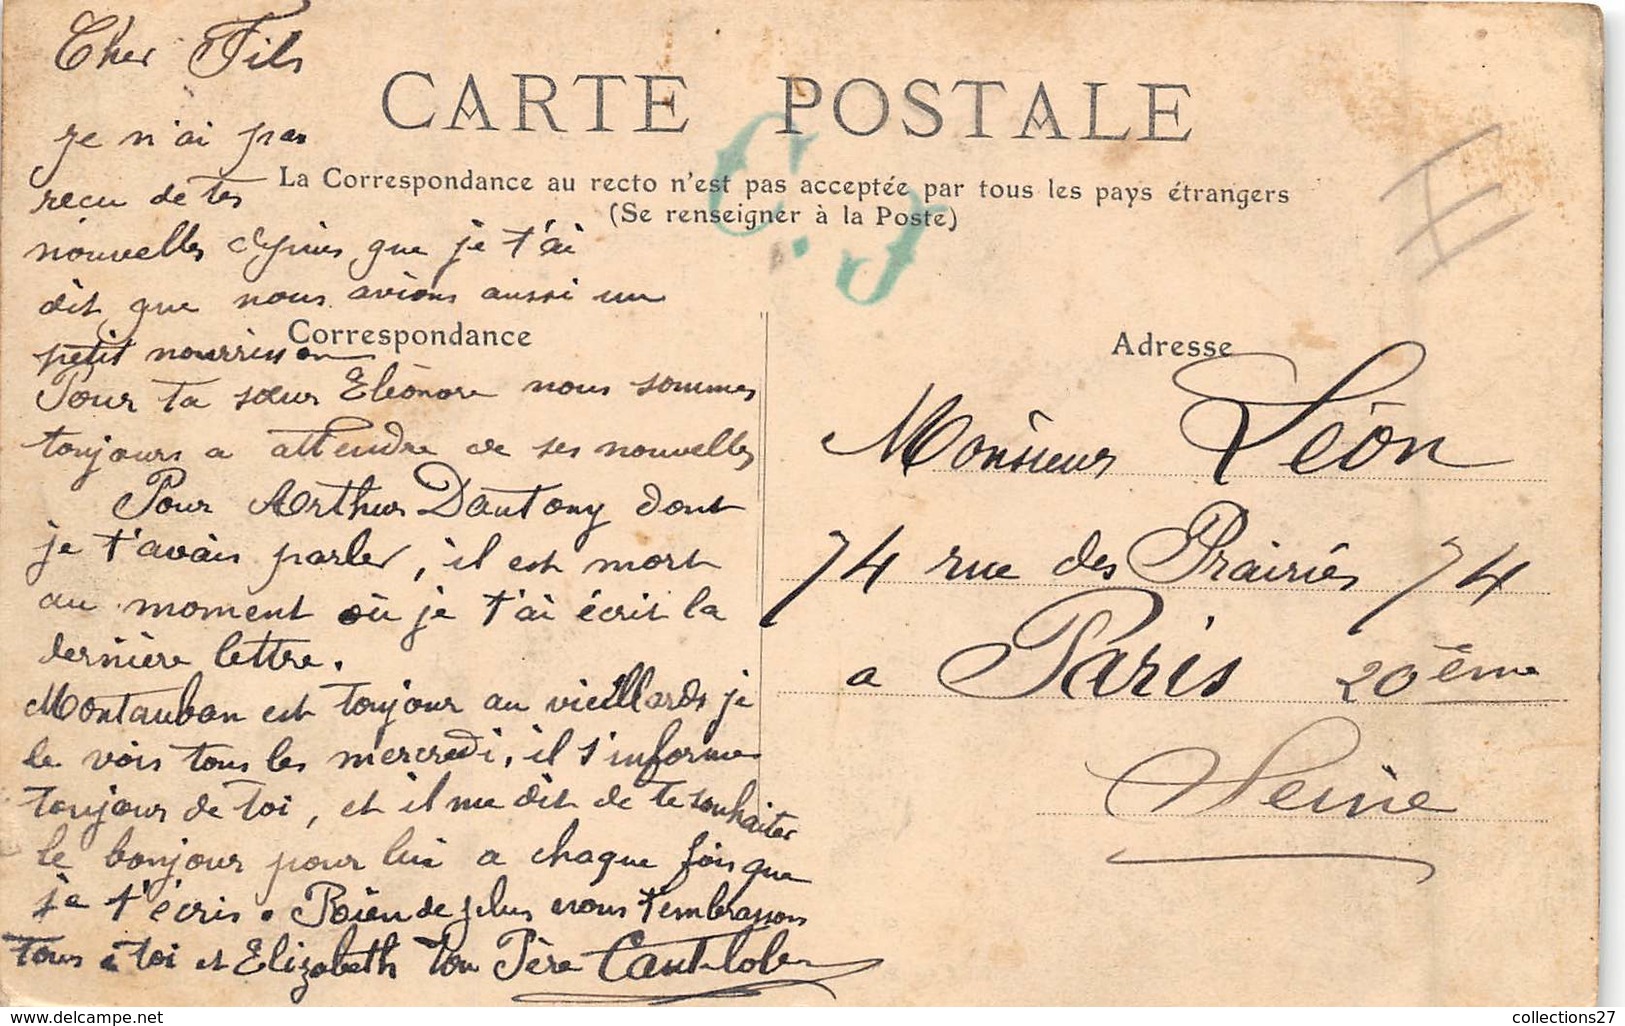 Cher Fils
CARTE POSTALE
La Correspondance au recto n'est pas acceptée par tous les pays étrangers
(Se renseigner à la Poste)
C.J
Correspondance
je n'ai pas
recu de tes
nouvelles depuis que je t'ai
dit que nous avions aussi un
petit nourrisson
Pour ta sœur Eléonore nous sommes
toujours a attendre de ses nouvelles
Pour Arthur Dautony dont
je t'avais parler, il est mort
au moment où je t'ai écrit la
dernière lettre.
Montauban est toujour au vieillards je
le vois tous les mercredi, il s'informe
toujour de toi, et il me dit de te souhaiter
le bonjour pour lui a chaque fois que
je t'écris. Rien de plus nous t'embrassons
tous à toi et Elizabeth ton Père
Adresse
Monsieur Léon
74 rue des Prairies 74
a Paris 20ème
Seine
collections27